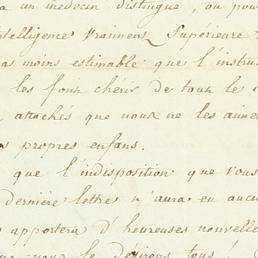 un médecin distingué, ou pou
ntelligence vraiment Supérieure
as moins estimable que l'instru
les font chérir de tout le
attachés que nous ne les aime
propres enfans.
que l'indisposition que vous
dernière lettre n'aura eu aucu
apportera d'heureuses nouvelle
nous le désirons tous !